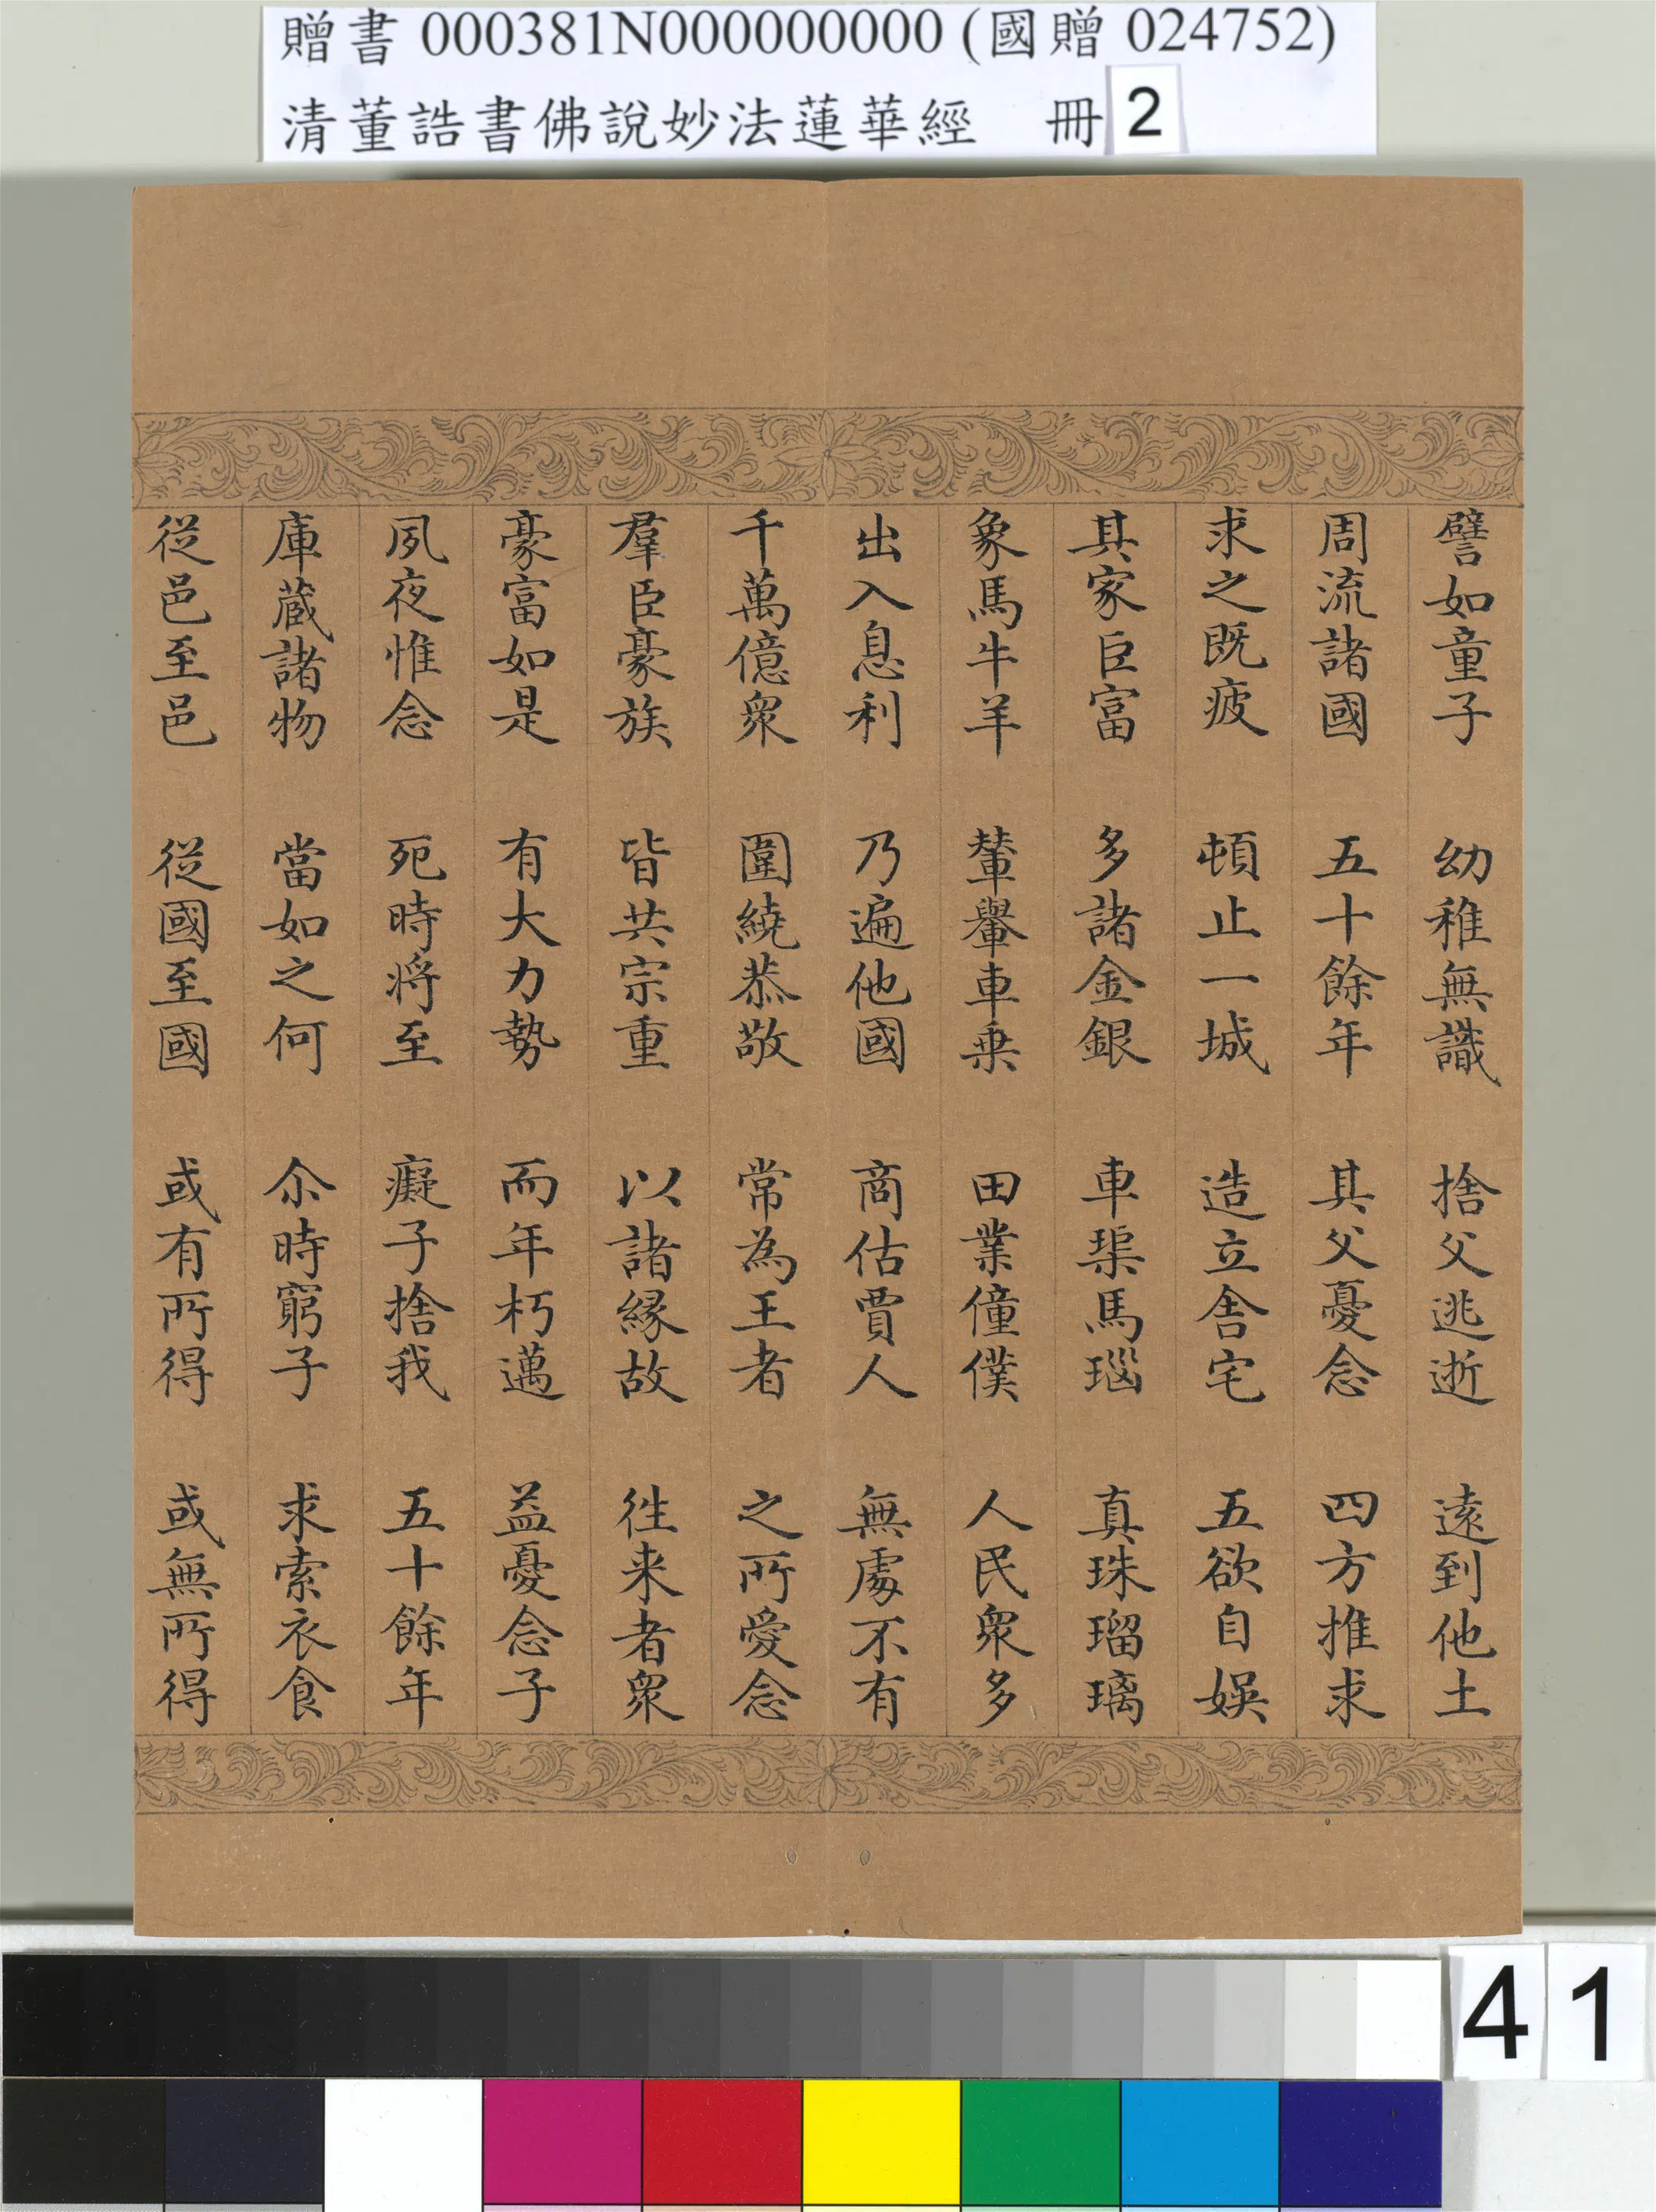 贈書 000381N000000000 (國贈 024752)
清董誥書佛說妙法蓮華經 冊 2
譬如童子 幼稚無識 捨父逃逝 遠到他土
周流諸國 五十餘年 其父憂念 四方推求
求之既疲 頓止一城 造立舍宅 五欲自娛
其家巨富 多諸金銀 車璖馬瑙 真珠瑠璃
象馬牛羊 輦轝車乗 田業僮僕 人民衆多
出入息利 乃遍他國 商估賈人 無處不有
千萬億衆 圍繞恭敬 常為王者 之所愛念
羣臣豪族 皆共宗重 以諸縁故 徃来者衆
豪富如是 有大力勢 而年朽邁 益憂念子
夙夜惟念 死時將至 癡子捨我 五十餘年
庫蔵諸物 當如之何 尒時窮子 求索衣食
從邑至邑 從國至國 或有所得 或無所得
41